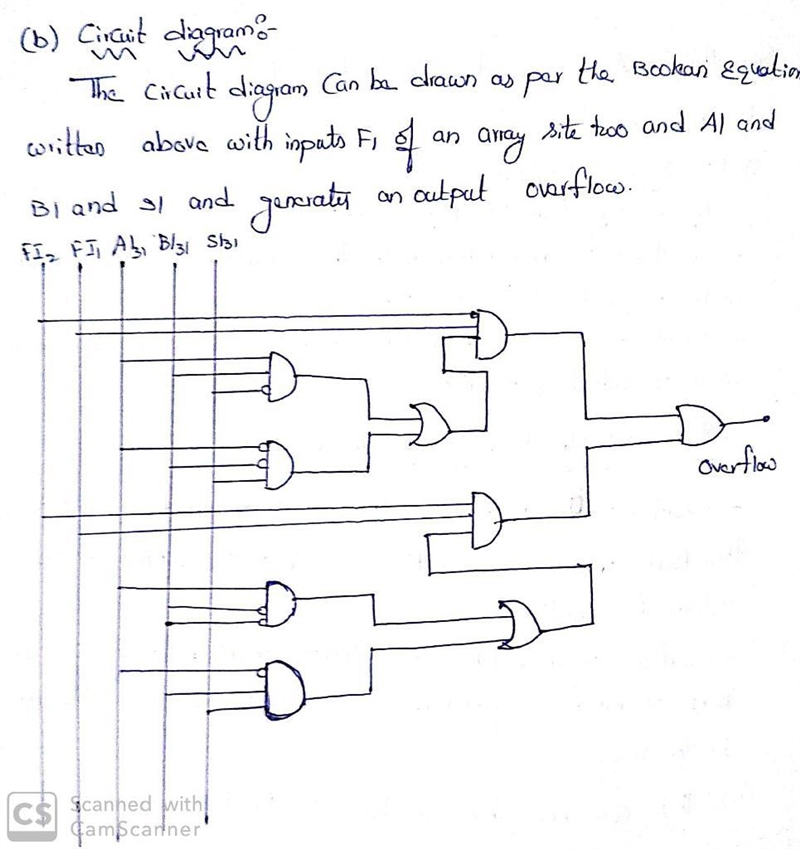 (b) Circuit diagram:-
The Circuit diagram Can be drawn as per the Bookan Equation
written above with inputs F1 of an array site too and A1 and
B1 and S1 and generates an output overflow.
FI2 FI1 A31 B/31 S/31
overflow
CS Scanned with
CamScanner